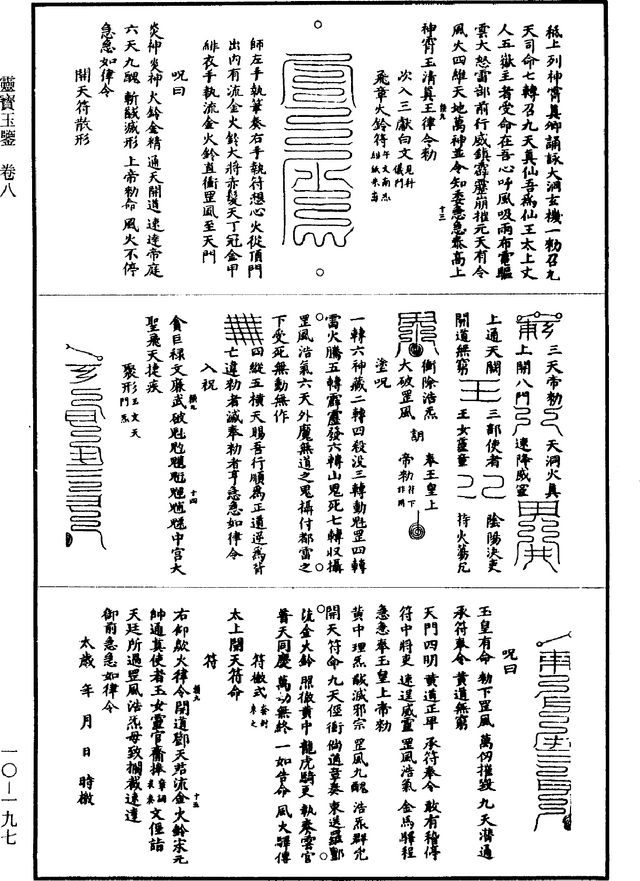 靈寶玉鑒 卷八
紙上列神霄真鄉誦詠大洞玄機一勅召九
天司命七轉召九天真仙吾為仙王太上丈
人五嶽主者受命在吾心呼風吸雨布電驅
雲大怒雷部前行威鎮霹靂崩摧元天有令
風火四維天地萬神並令知委急急奉高上
神霄玉清真王律令勑
十三
次入三獻白文
飛章火鈴符
師左手執筆奏右手執符想心火從頂門
出內有流金火鈴大將赤髮天丁冠金甲
緋衣手執流金火鈴直衝罡風至天門
呪曰
炎神炎神 火鈴金精 通天開道 速達帝庭
六天九醜 斬馘滅形 上帝勑命 風火不停
急急如律令
開天符散形
三天帝勑 天洞火真
上開八門 速降威靈
上通天關 三部使者 陰陽決吏
開道無窮 玉女靈童 持火萬尤
衝除浩炁 奉玉皇上
大破罡風 帝勑
塗呪
一轉六神藏二轉四殺没三轉動魁罡四轉
雷火騰五轉霹靂發六轉山鬼死七轉収攝
罡風浩氣六天外魔無道之鬼攝付都雷之
下受死無動無作
四縱五橫天賜吾行順為正道逆為背
亡違勑者滅奉勑者亨急急如律令
入祝
貪巨禄文廉武破魁䰢䰣魓魒中宮大
十四
聖飛天捷疾
聚形
玉皇有命 勑下罡風 萬仞摧毀 九天潛通
承符奉令 黃道無窮
呪曰
天門四明 黃道正平 承符奉令 敢有稽停
符中將吏 速逞威靈 罡風浩氣 金馬驛程
急急奉玉皇上帝勑
黃中理炁 馘滅邪宗 罡風九醜 浩炁群兇
開天符命 九天徑衝 倘遇章奏 束送羅酆
流金火鈴 照徹黃中 龍虎騎吏 執奏雲宮
普天同慶 萬劫無終 一如告命 風火驛傳
符檄式
太上開天符命
符
右仰歘火律令開道鄧天君流金火鈴宋元
十五
帥通真使者玉女靈官齎捧文徑詣
天廷所過罡風浩炁毋致攔截速達
御前急急如律令
太歲 年 月 日 時檄
一〇—一九七